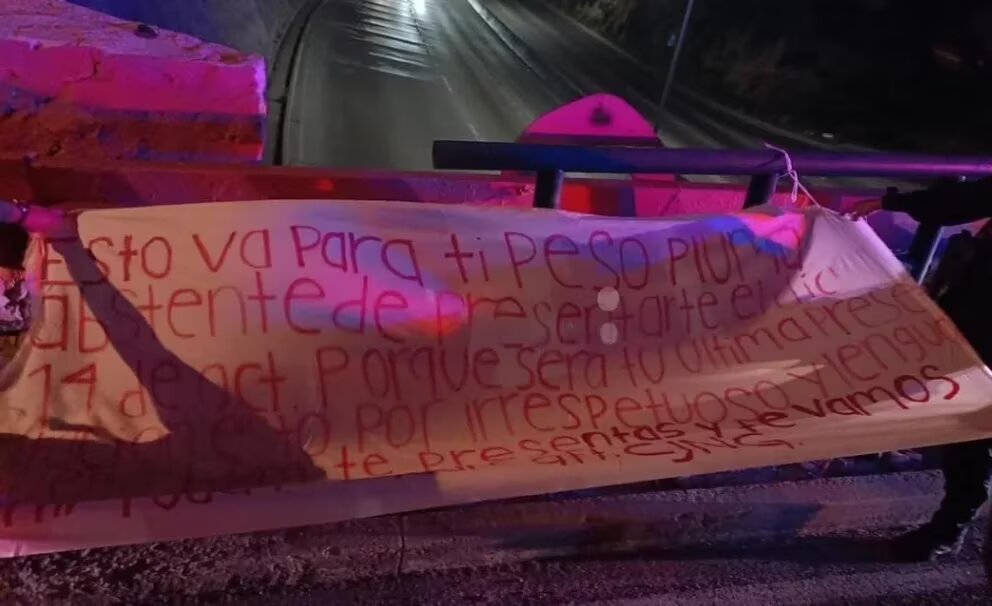 Esto va para ti Peso Pluma
abstente de presentarte el dia
14 de oct. Porque sera tu ultima prese
por irrespetuoso y lengu
te presentas y te vamos